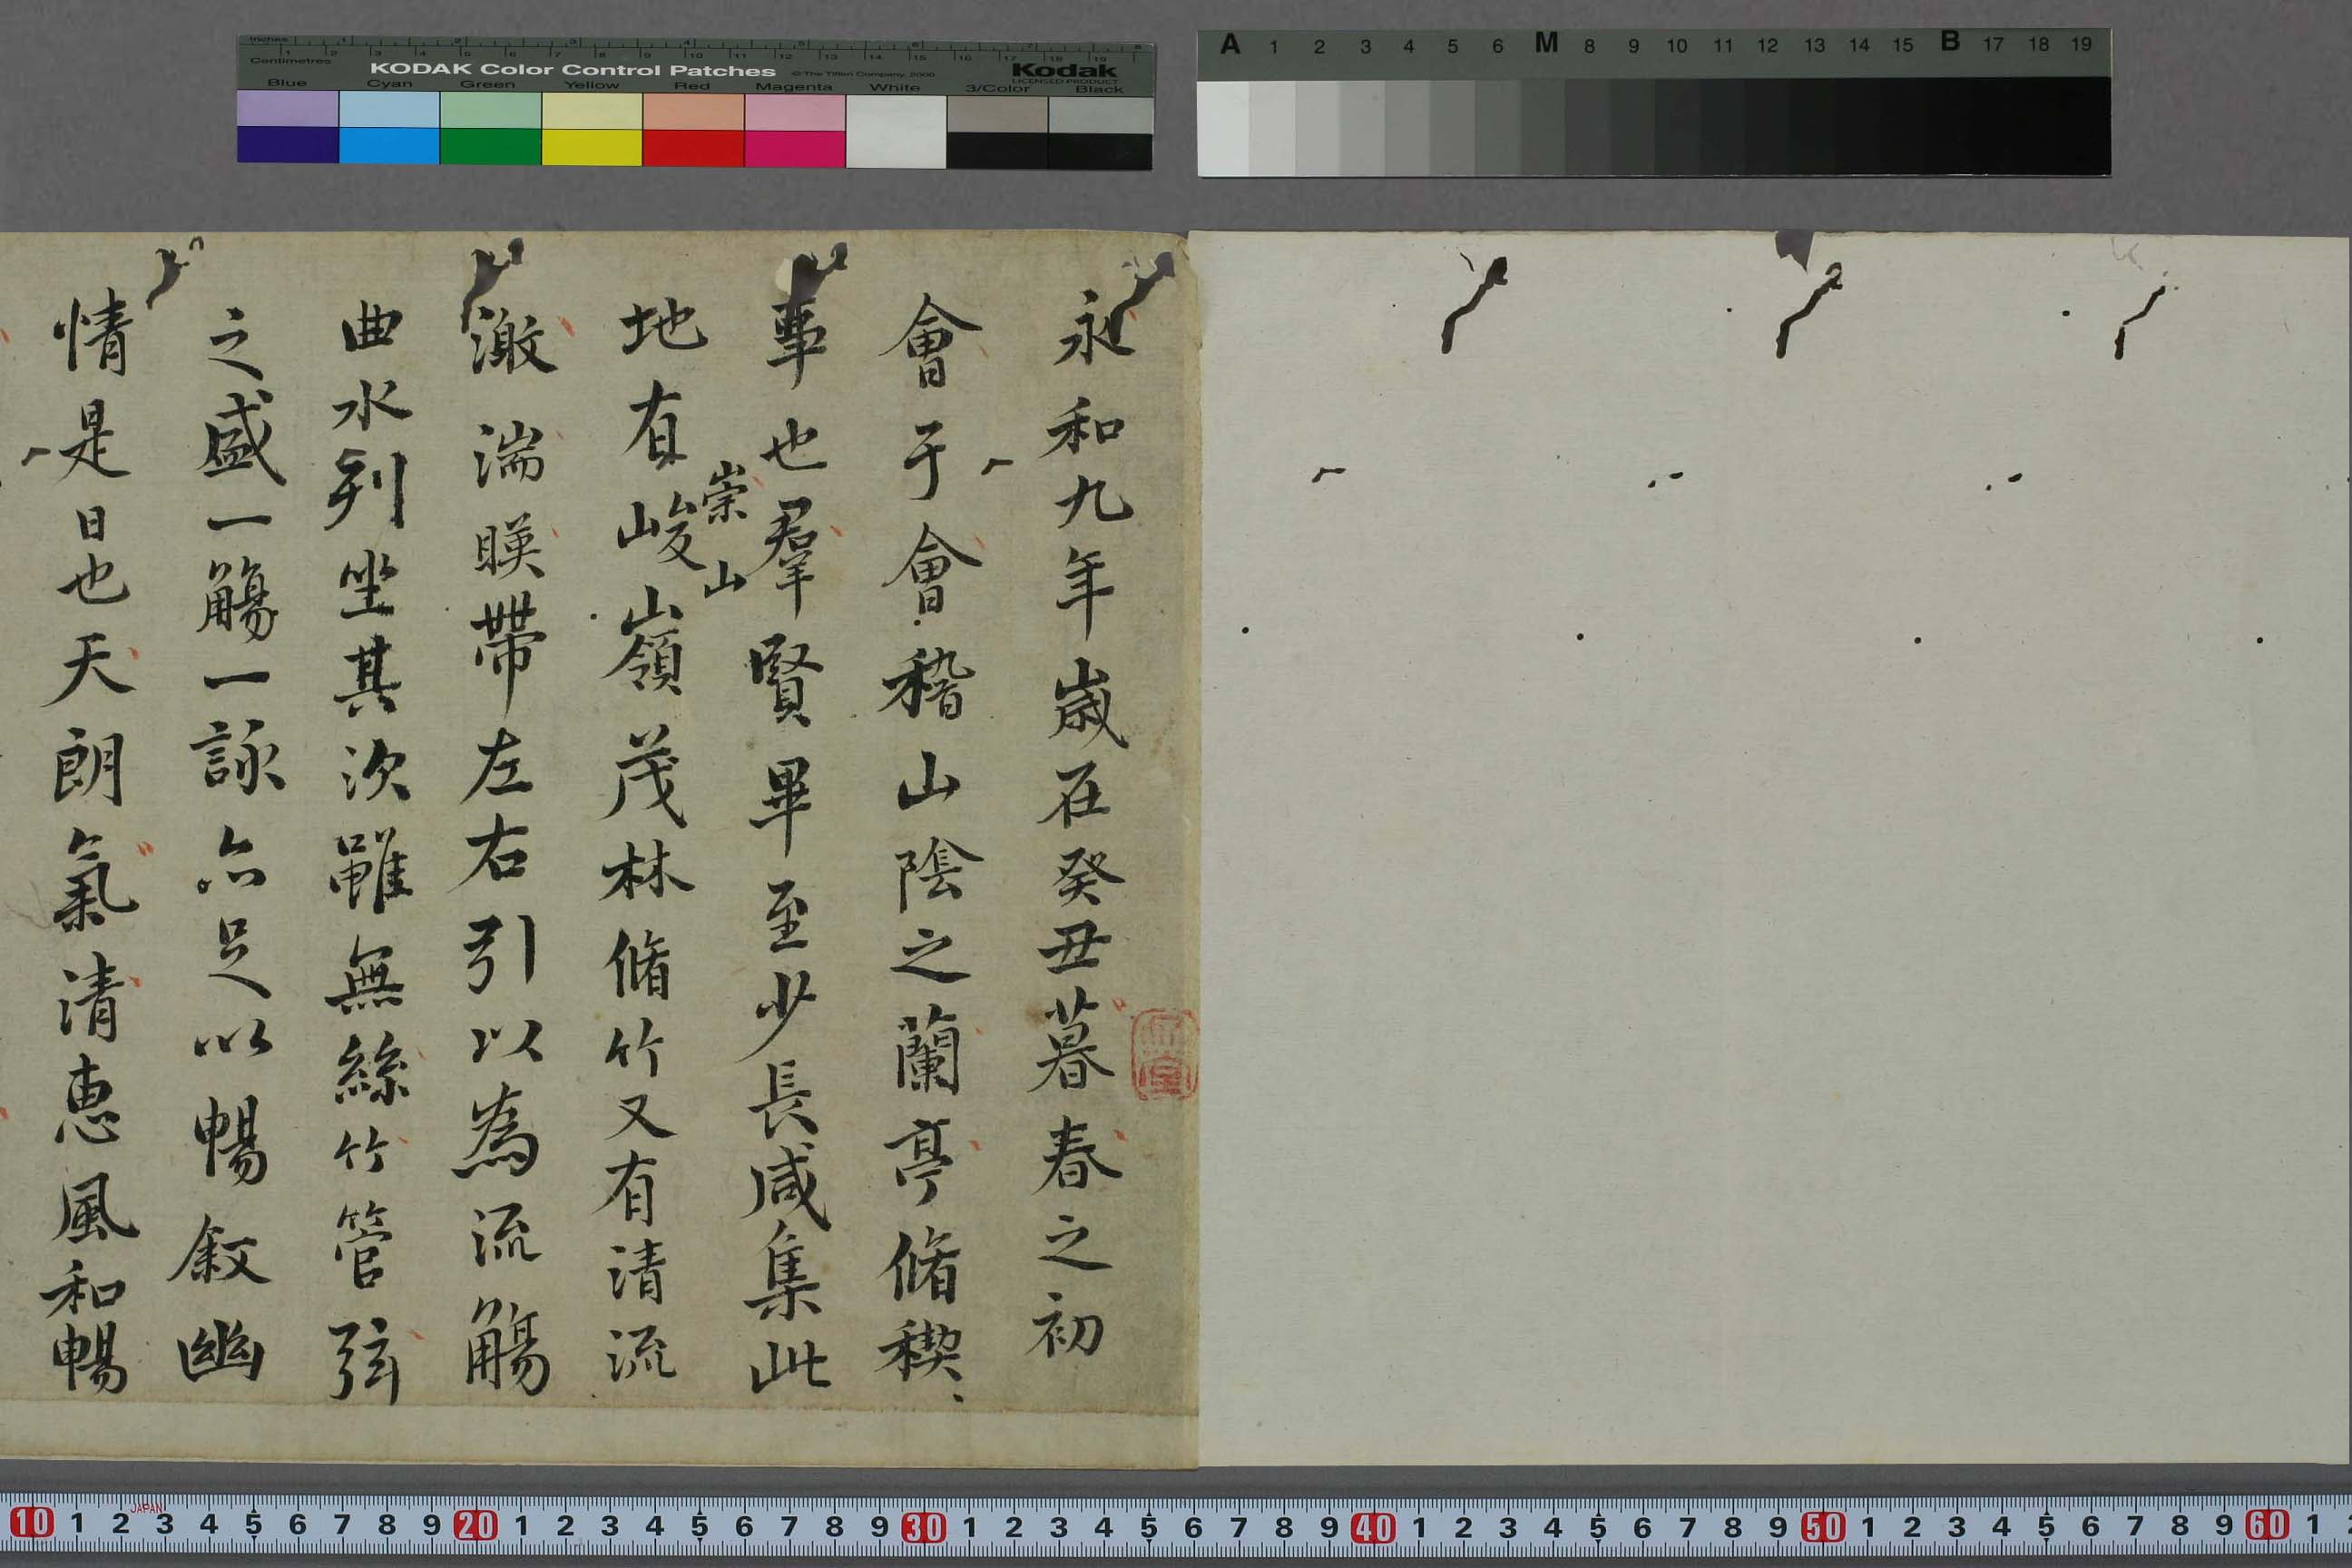 inches 1 2 3 4 5 6 7 8
Centimetres 1 2 3 4 5 6 7 8 9 10 11 12 13 14 15 16 17 18 19
KODAK Color Control Patches © The Tiffen Company, 2000 Kodak
LICENSED PRODUCT
Blue Cyan Green Yellow Red Magenta White 3/Color Black
A 1 2 3 4 5 6 M 8 9 10 11 12 13 14 15 B 17 18 19
永和九年歳在癸丑暮春之初
會于會稽山陰之蘭亭脩稧
事也羣賢畢至少長咸集此
地有崇山峻嶺茂林脩竹又有清流
激湍暎帶左右引以為流觴
曲水列坐其次雖無絲竹管弦
之盛一觴一詠亦足以暢敘幽
情是日也天朗氣清恵風和暢
10 1 2 3 4 5 6 7 8 9 20 1 2 3 4 5 6 7 8 9 30 1 2 3 4 5 6 7 8 9 40 1 2 3 4 5 6 7 8 9 50 1 2 3 4 5 6 7 8 9 60 1
JAPAN